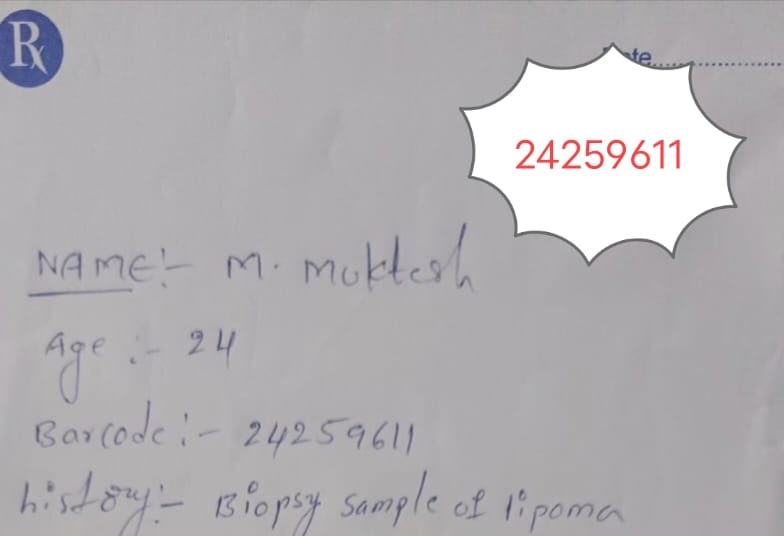 Rx
24259611
NAME:- M. Muktesh
Age :- 24
Barcode :- 24259611
history:- Biopsy sample of lipoma